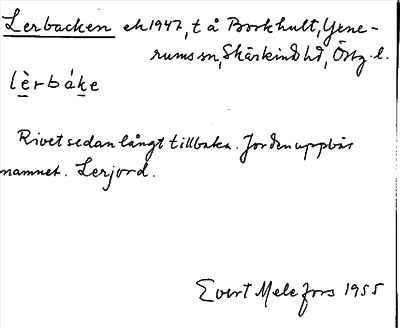 Lerbacken ek 1947, t å Borkhult, Yxne-
rums sn, Skärkinds hd, Östg. l.
lèrbáke
Rivet sedan långt tillbaka. Jorden uppbär
namnet. Lerjord.
Evert Melefors 1955